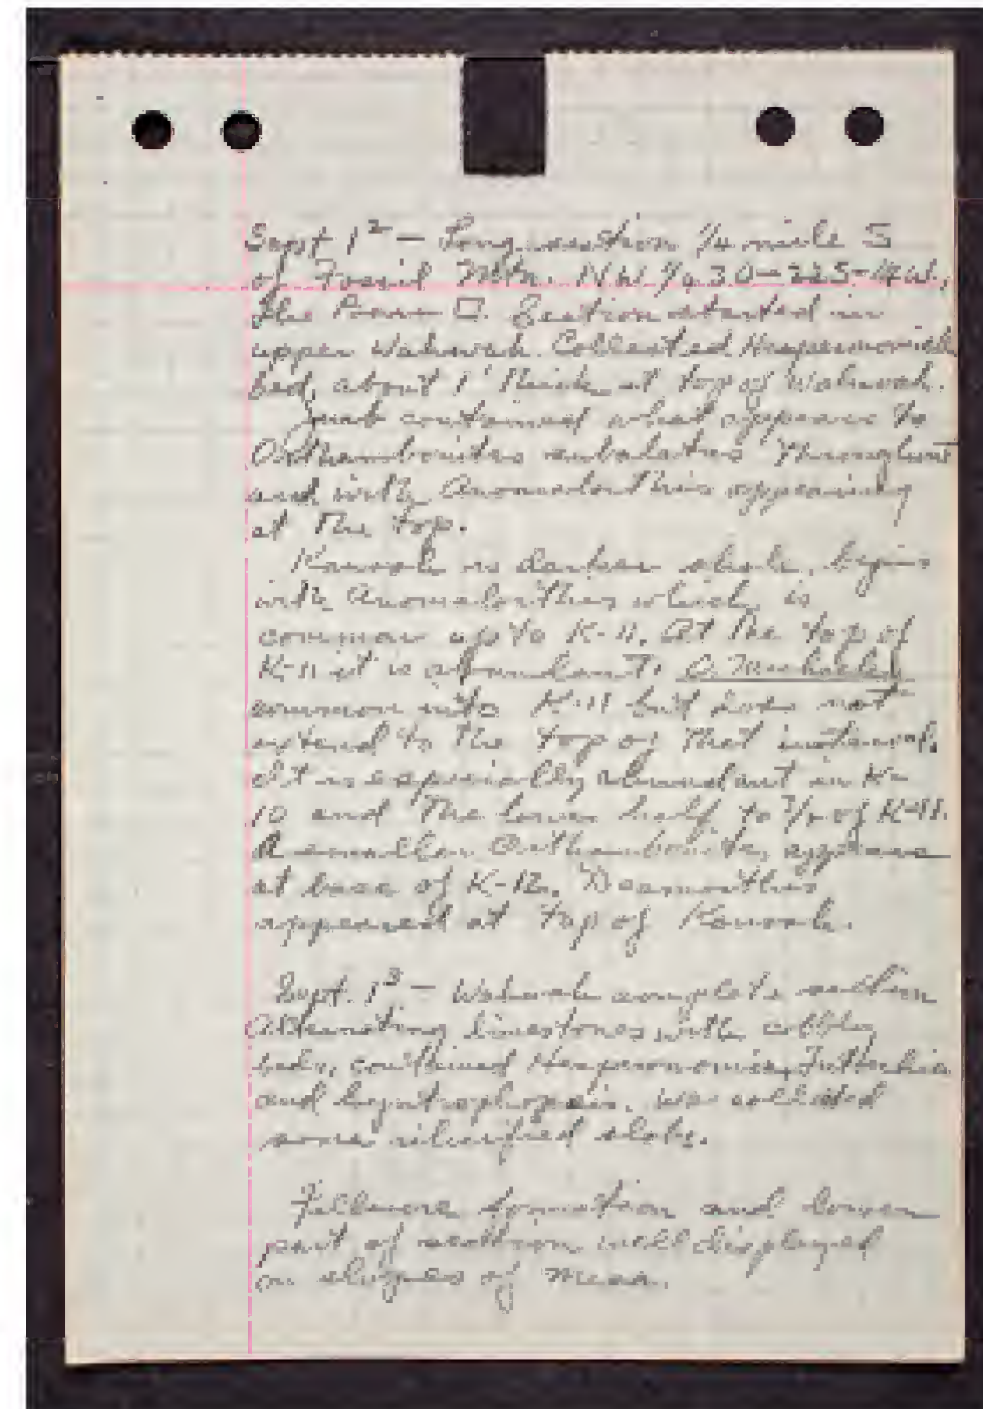 Sept 1² — Long section ¼ mile S
of Fossil Mtn. NW ¼ 30-22S-14W,
The Section started in
upper Wahwah. Collected Hesperonomiella
bed, about 1' thick at top of Wahwah.
Juab contained what appears to
Orthambonites subalatus throughout
and with Anomalorthis appearing
at the top.
Kanosh is darker shale, begins
with Anomalorthis which is
common up to K-11. At the top of
K-11 it is abundant. O. michaelis
common into K-11 but does not
extend to the top of that interval.
It is especially abundant in K-
10 and the lower half to of K-11.
A smaller Orthambonites appears
at base of K-12. Desmorthis
appeared at top of Kanosh.
Sept. 1³ — Wahwah complete section
Alternating limestones with cobbly
beds, contained Hesperonomia, Tritoechia
and Syntrophopsis. was collected
some silicified slabs.
Fillmore formation and lower
part of section well displayed
on slopes of Mesa.